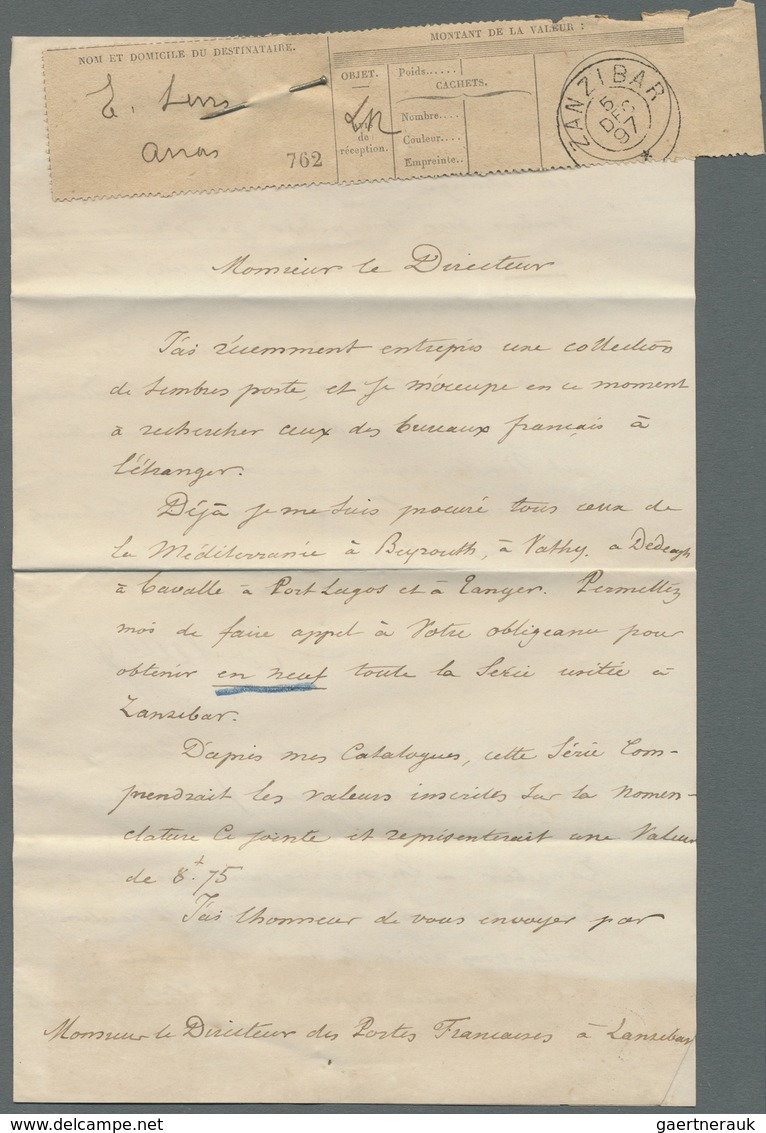 NOM ET DOMICILE DU DESTINATAIRE.
MONTANT DE LA VALEUR :
OBJET.
Poids......
CACHETS.
Nombre....
Couleur....
Empreinte..
de
réception.
762
Arras
ZANZIBAR
5
DEC
97
Monsieur le Directeur
J'ai récemment entrepris une collection
de timbres poste, et je m'occupe en ce moment
à rechercher ceux des bureaux français à
l'étranger.
Déjà je me suis procuré tous ceux de
la Méditerranée à Beyrouth, à Vathy, à Dédéagh
à Cavalle à Port Lagos et à Tanger. Permettez
moi de faire appel à Votre obligeance pour
obtenir en neuf toute la Série usitée à
Zanzibar.
D'après mes Catalogues, cette Série Com-
prendrait les valeurs inscrites sur la nomen-
clature Ci jointe et représenterait une Valeur
de 8.f 75
J'ai l'honneur de vous envoyer par
Monsieur le Directeur des Postes Françaises à Zanzibar
gaertnerauk@gaertnerauk.com